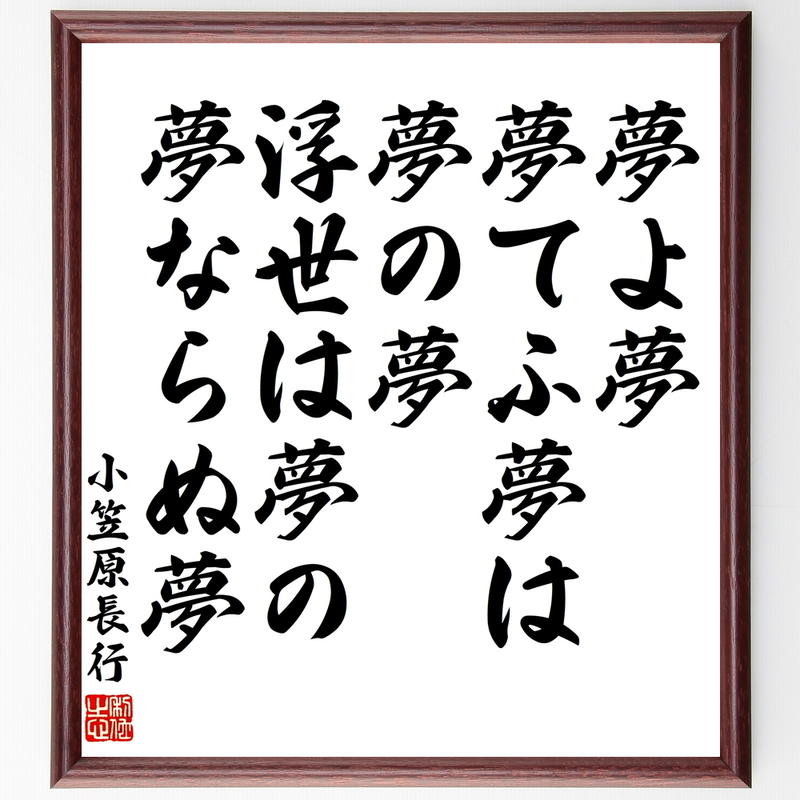 夢よ夢
夢てふ夢は
夢の夢
浮世は夢の
夢ならぬ夢
小笠原長行